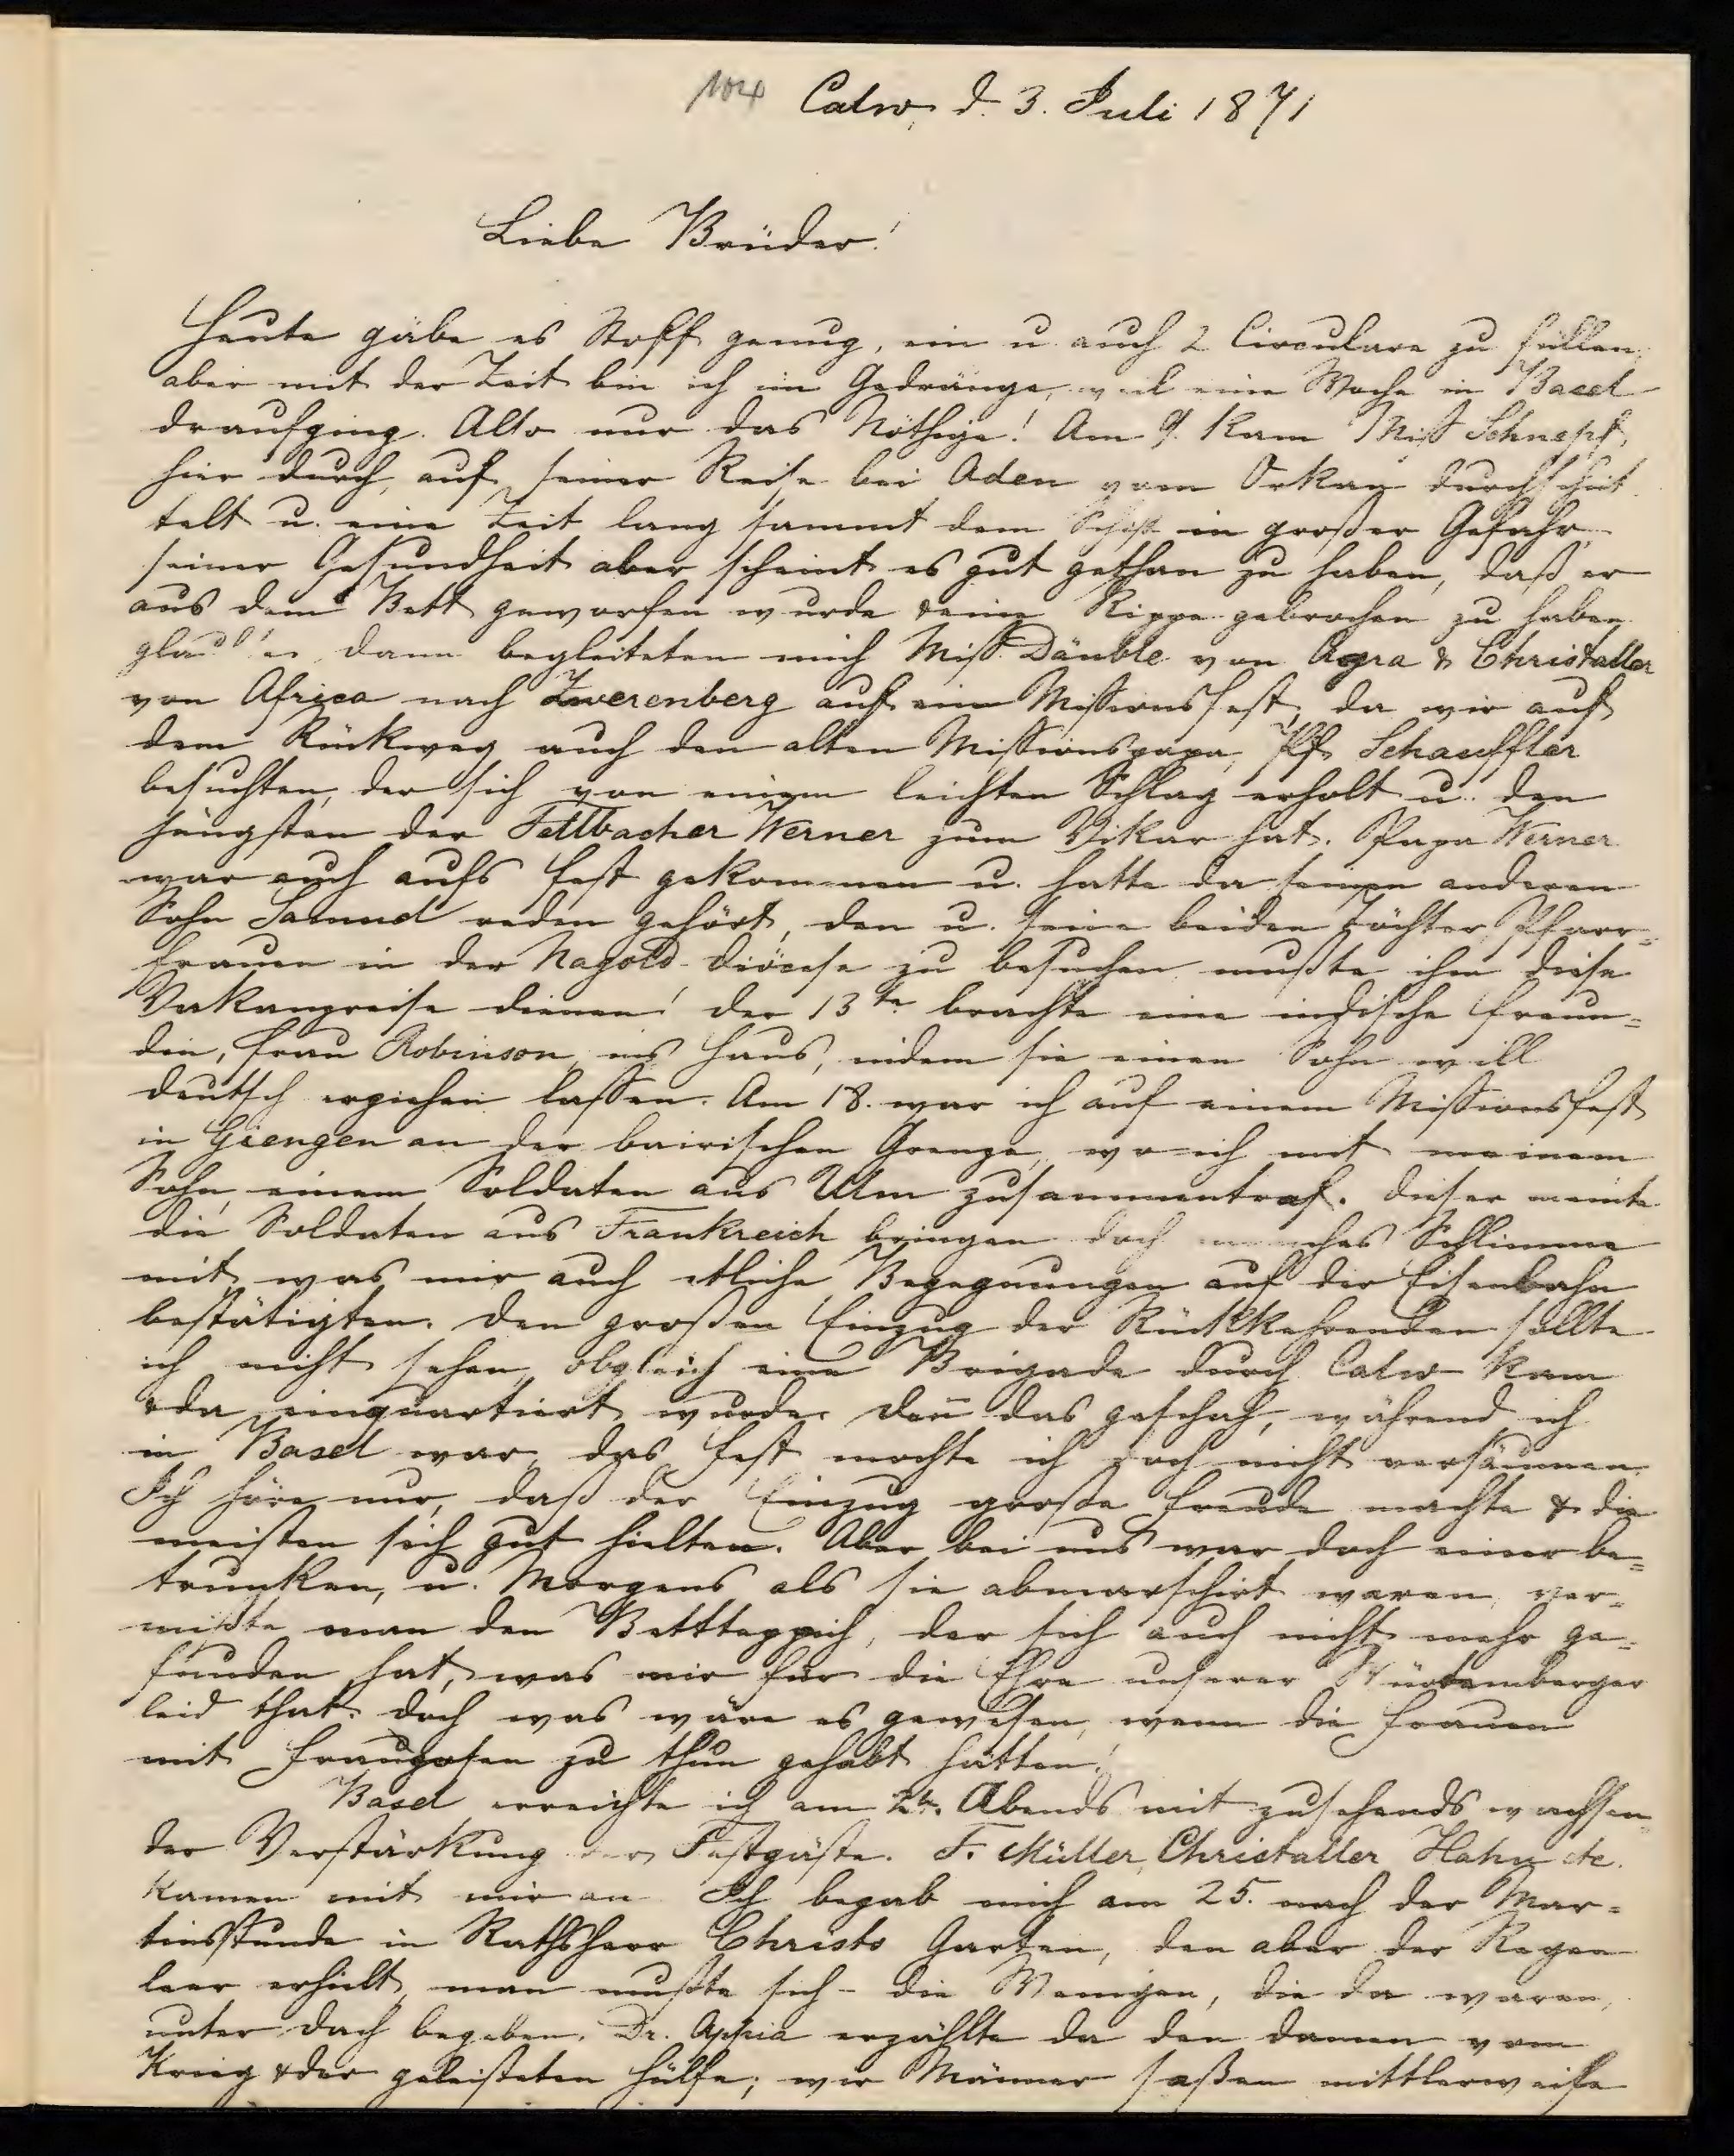 104 Calw, d. 3. Juli 1871
Liebe Brüder!
Heute gäbe es Stoff genug, ein u. auch 2 Circulare zu füllen,
aber mit der Zeit bin ich im Gedränge, weil eine Woche in Basel
draufging. Also nur das Nöthige! Am 9. kam Miss Schnepf
hier durch, auf seiner Reise bei Aden vom Orkan durchschüt
telt u. eine Zeit lang sammt dem Schiff in großer Gefahr,
seiner Gesundheit aber scheint es gut gethan zu haben, daß er
aus dem Bett geworfen wurde & eine Rippe gebrochen zu haben
glaubte. Dann begleiteten mich Miss. Däuble von Agra & Christaller
von Africa nach Zwerenberg auf ein Missionsfest, da wir auf
dem Rückweg auch den alten Missionspapa, Pf. Schauffler
besuchten, der sich von einem leichten Schlag erholt u. den
jüngsten der Fellbacher Werner zum Vikar hat. Papa Werner
war auch aufs Fest gekommen u. hatte da seinen anderen
Sohn Samuel reden gehört, den u. seine beiden Töchter Pfarr=
frauen in der Nagold-Diöcese zu besuchen mußte ihm diese
Vakanzreise dienen! Der 13te brachte eine indische Freun=
din, Frau Robinson ins Haus, indem sie einen Sohn will
deutsch erziehen lassen. Am 18. war ich auf einem Missionsfest
in Giengen an der bairischen Grenze, wo ich mit meinem
Sohn, einem Soldaten aus Ulm zusammentraf. Dieser meinte
die Soldaten aus Frankreich bringen doch manches Schlimme
mit, was mir auch etliche Begegnungen auf der Eisenbahn
bestätigten. Den großen Einzug der Rückkehrenden sollte
ich nicht sehen, obgleich eine Brigade durch Calw kam
& da einquartiert wurde. Deñ das geschah, während ich
in Basel war, das Fest mochte ich doch nicht versäumen.
Ich höre nur, daß der Einzug große Freude machte & die
meisten sich gut hielten. Aber bei uns war doch einer be=
trunken, u. Morgens als sie abmarschirt waren, ver=
mißte man den Bettteppich, der sich auch nicht mehr ge=
funden hat, was mir für die Ehre unserer Würtemberger
leid that. Doch was wäre es gewesen, wenn die Frauen
mit Franzosen zu thun gehabt hätten!
Basel erreichte ich am Abends mit zusehends wachsen=
der Verstärkung der Festgäste. F. Müller, Christaller Hahn etc.
kamen mit mir an. Ich begab mich am 25. nach der Mar=
tinsstunde in Rathsherr Christs Garten, den aber der Regen
leer erhielt, man mußte sich - die Wenigen, die da waren,
unter Dach begeben. Dr. Appia erzählte da den Damen vom
Krieg & der geleisteten Hülfe; wir Männer saßen mittlerweile